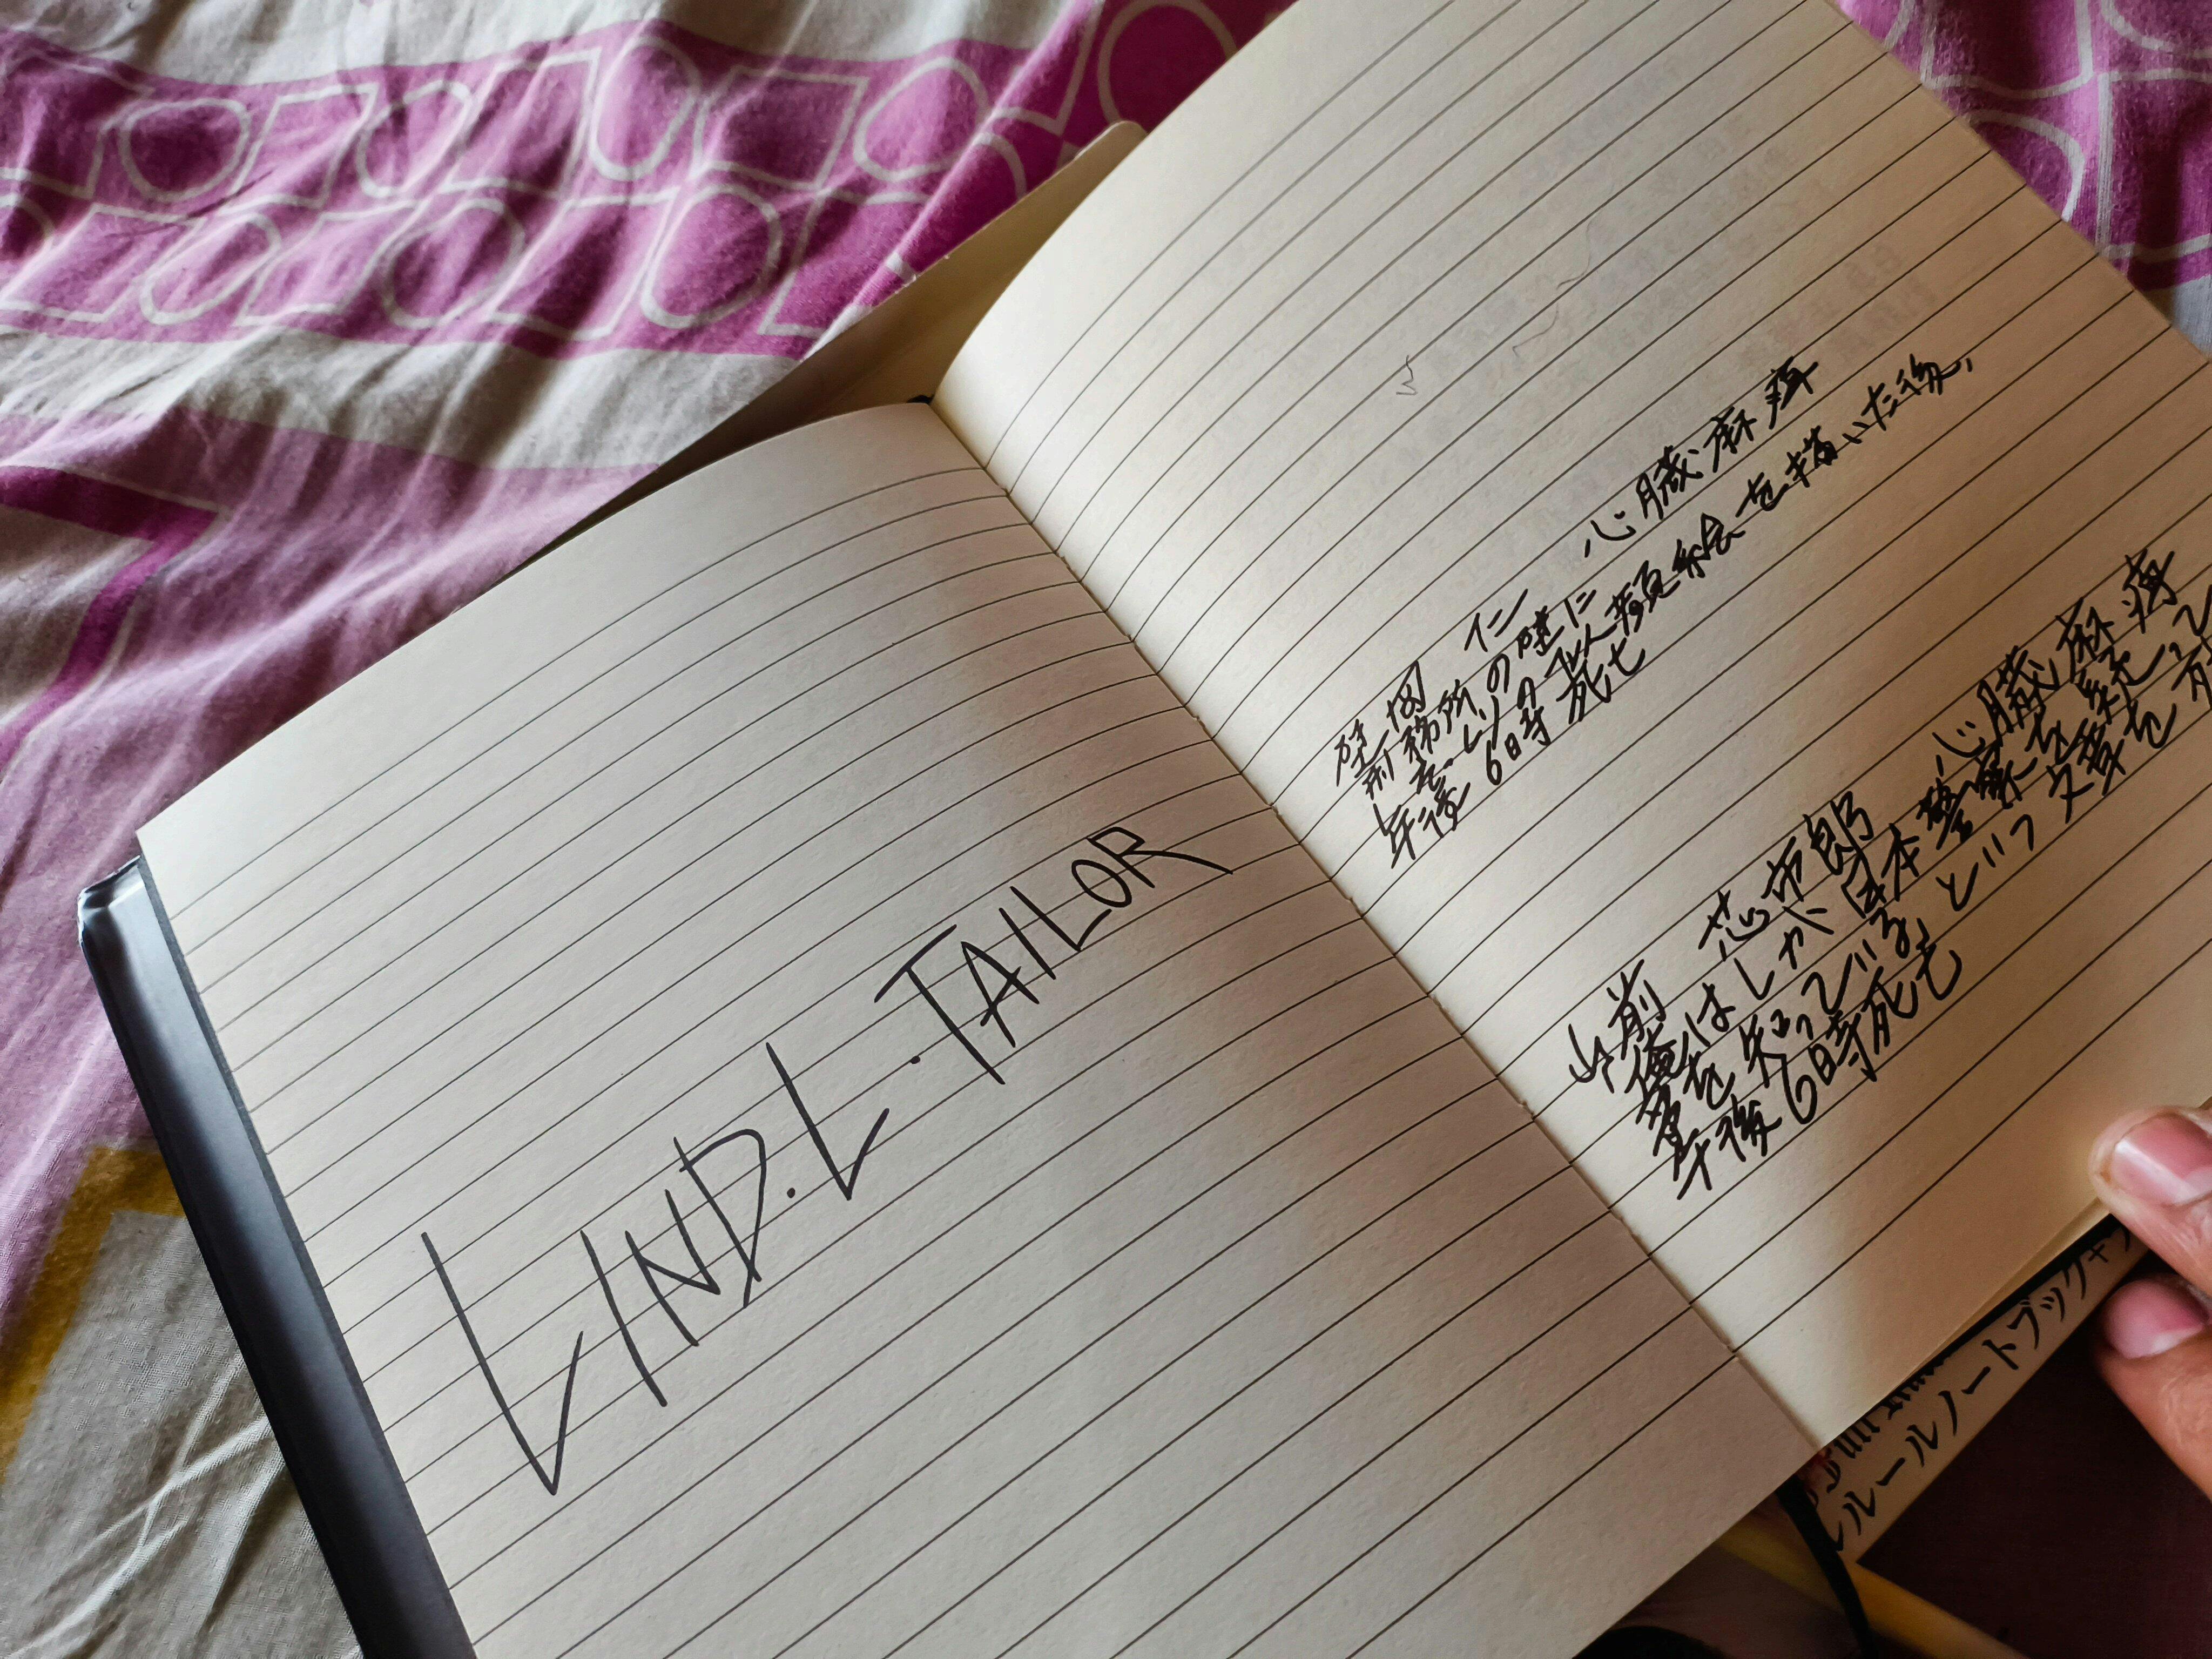 LIND.L.TAILOR
仁 心臓麻痺
刑務所の壁に
の 似顔絵を描いた後、
午後6時死亡
山前 心臓麻痺
俺はしかし日本警察を
を知っている」という文章を
午後6時死亡
ルールノートブック